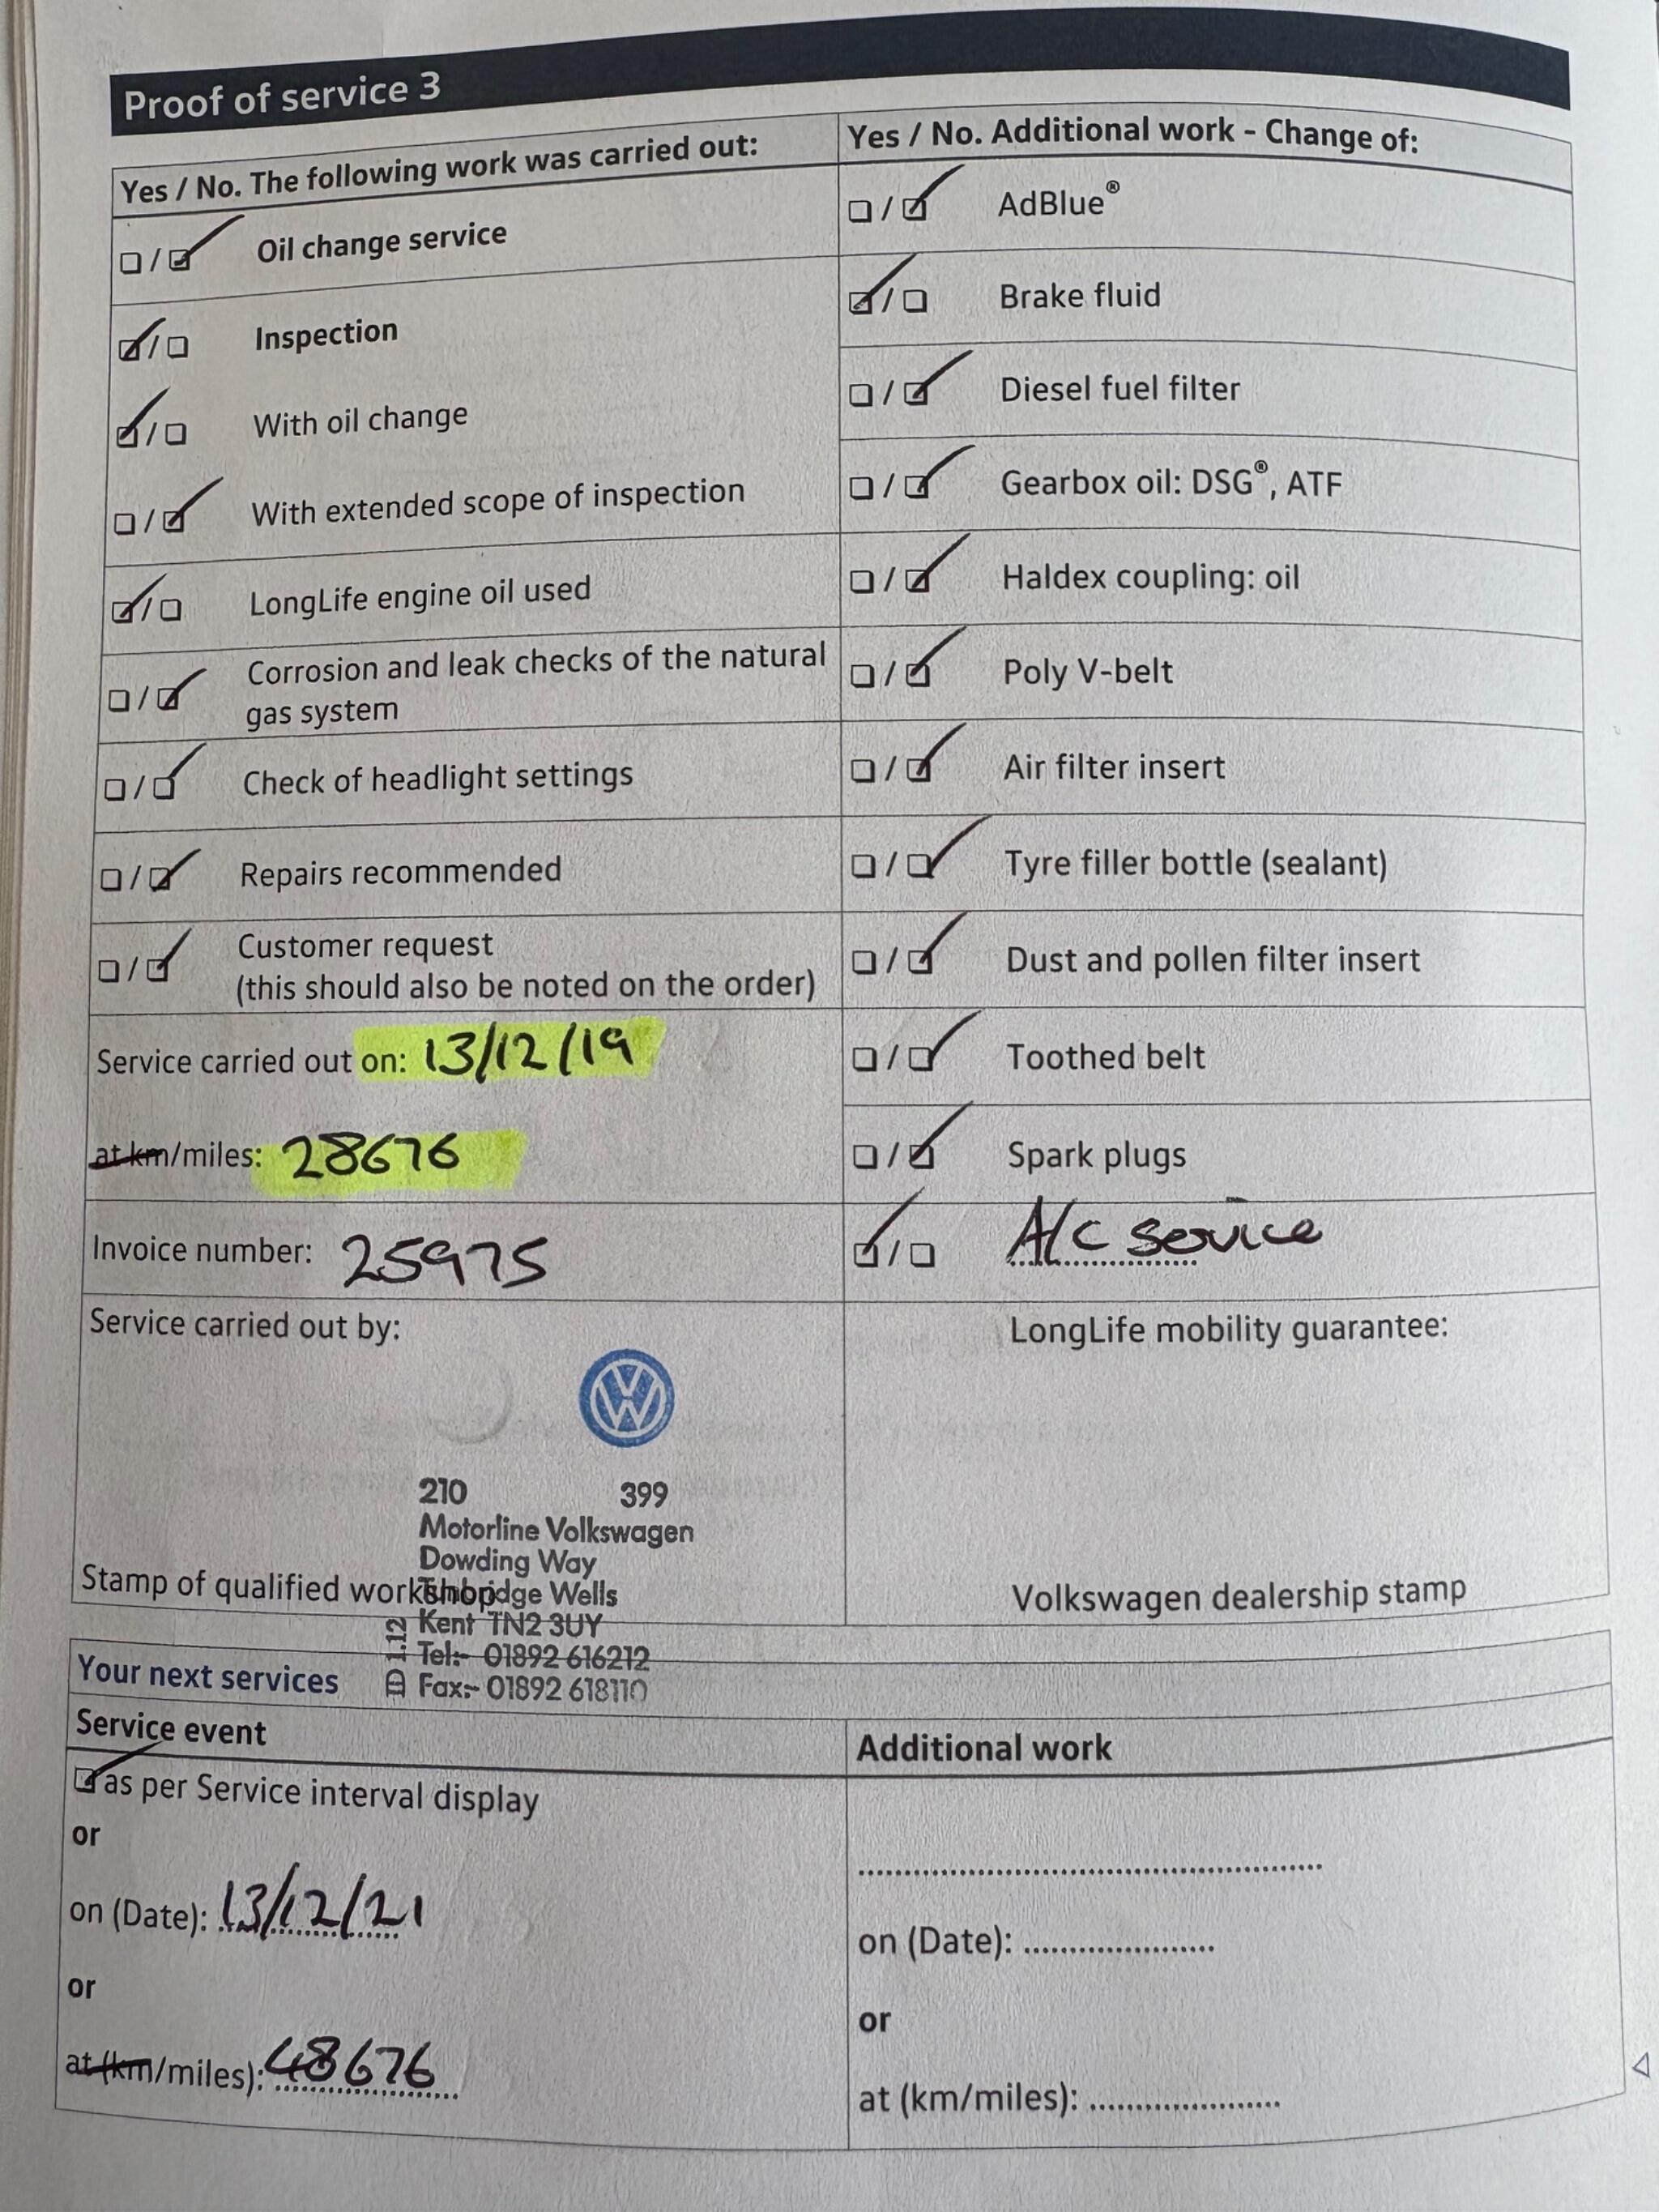 Proof of service 3
Yes / No. The following work was carried out:
Oil change service
Inspection
With oil change
With extended scope of inspection
LongLife engine oil used
Corrosion and leak checks of the natural
gas system
Check of headlight settings
Repairs recommended
Customer request
(this should also be noted on the order)
Service carried out on: 13/12/19
at km/miles: 28676
Invoice number: 25975
Service carried out by:
210 399
Motorline Volkswagen
Dowding Way
Tunbridge Wells
Kent TN2 3UY
Tel:- 01892 616212
Fax:- 01892 618110
Stamp of qualified workshop
Yes / No. Additional work - Change of:
AdBlue®
Brake fluid
Diesel fuel filter
Gearbox oil: DSG®, ATF
Haldex coupling: oil
Poly V-belt
Air filter insert
Tyre filler bottle (sealant)
Dust and pollen filter insert
Toothed belt
Spark plugs
A/C service
LongLife mobility guarantee:
Volkswagen dealership stamp
Your next services
Service event
as per Service interval display
or
on (Date): 13/12/21
or
at (km/miles): 48676
Additional work
on (Date):
or
at (km/miles):